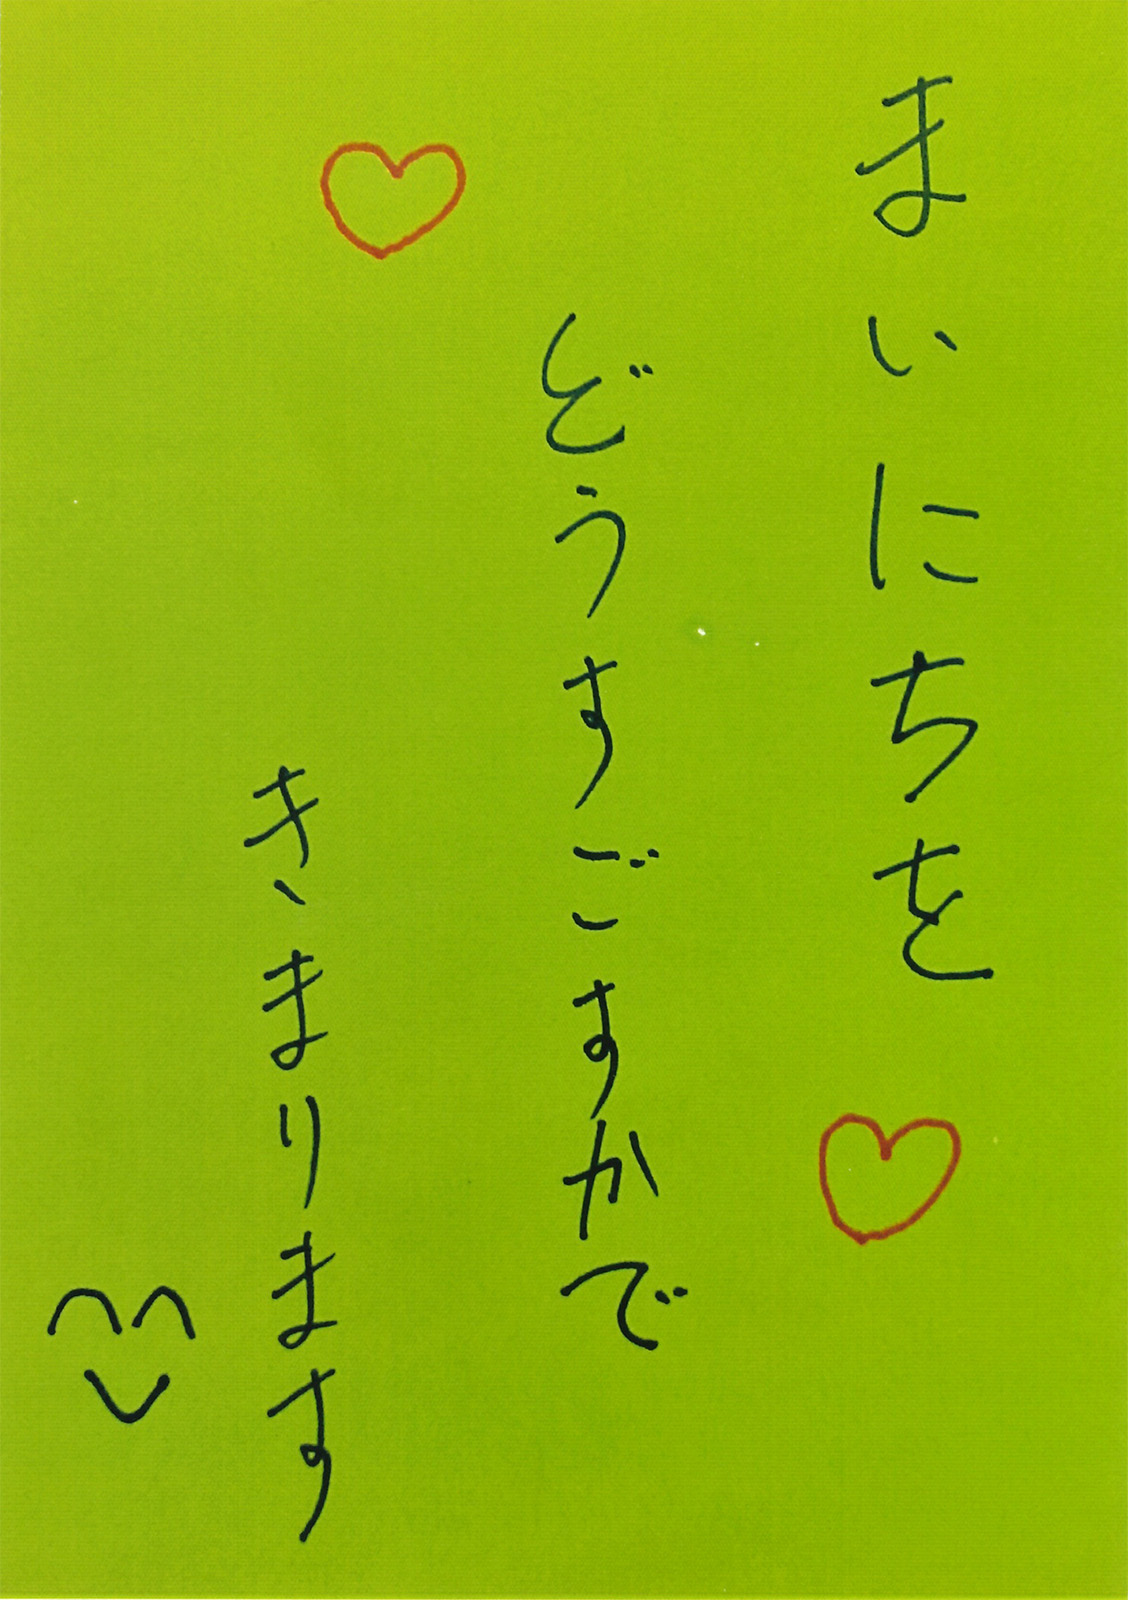 まいにちを
どうすごすかで
きまります